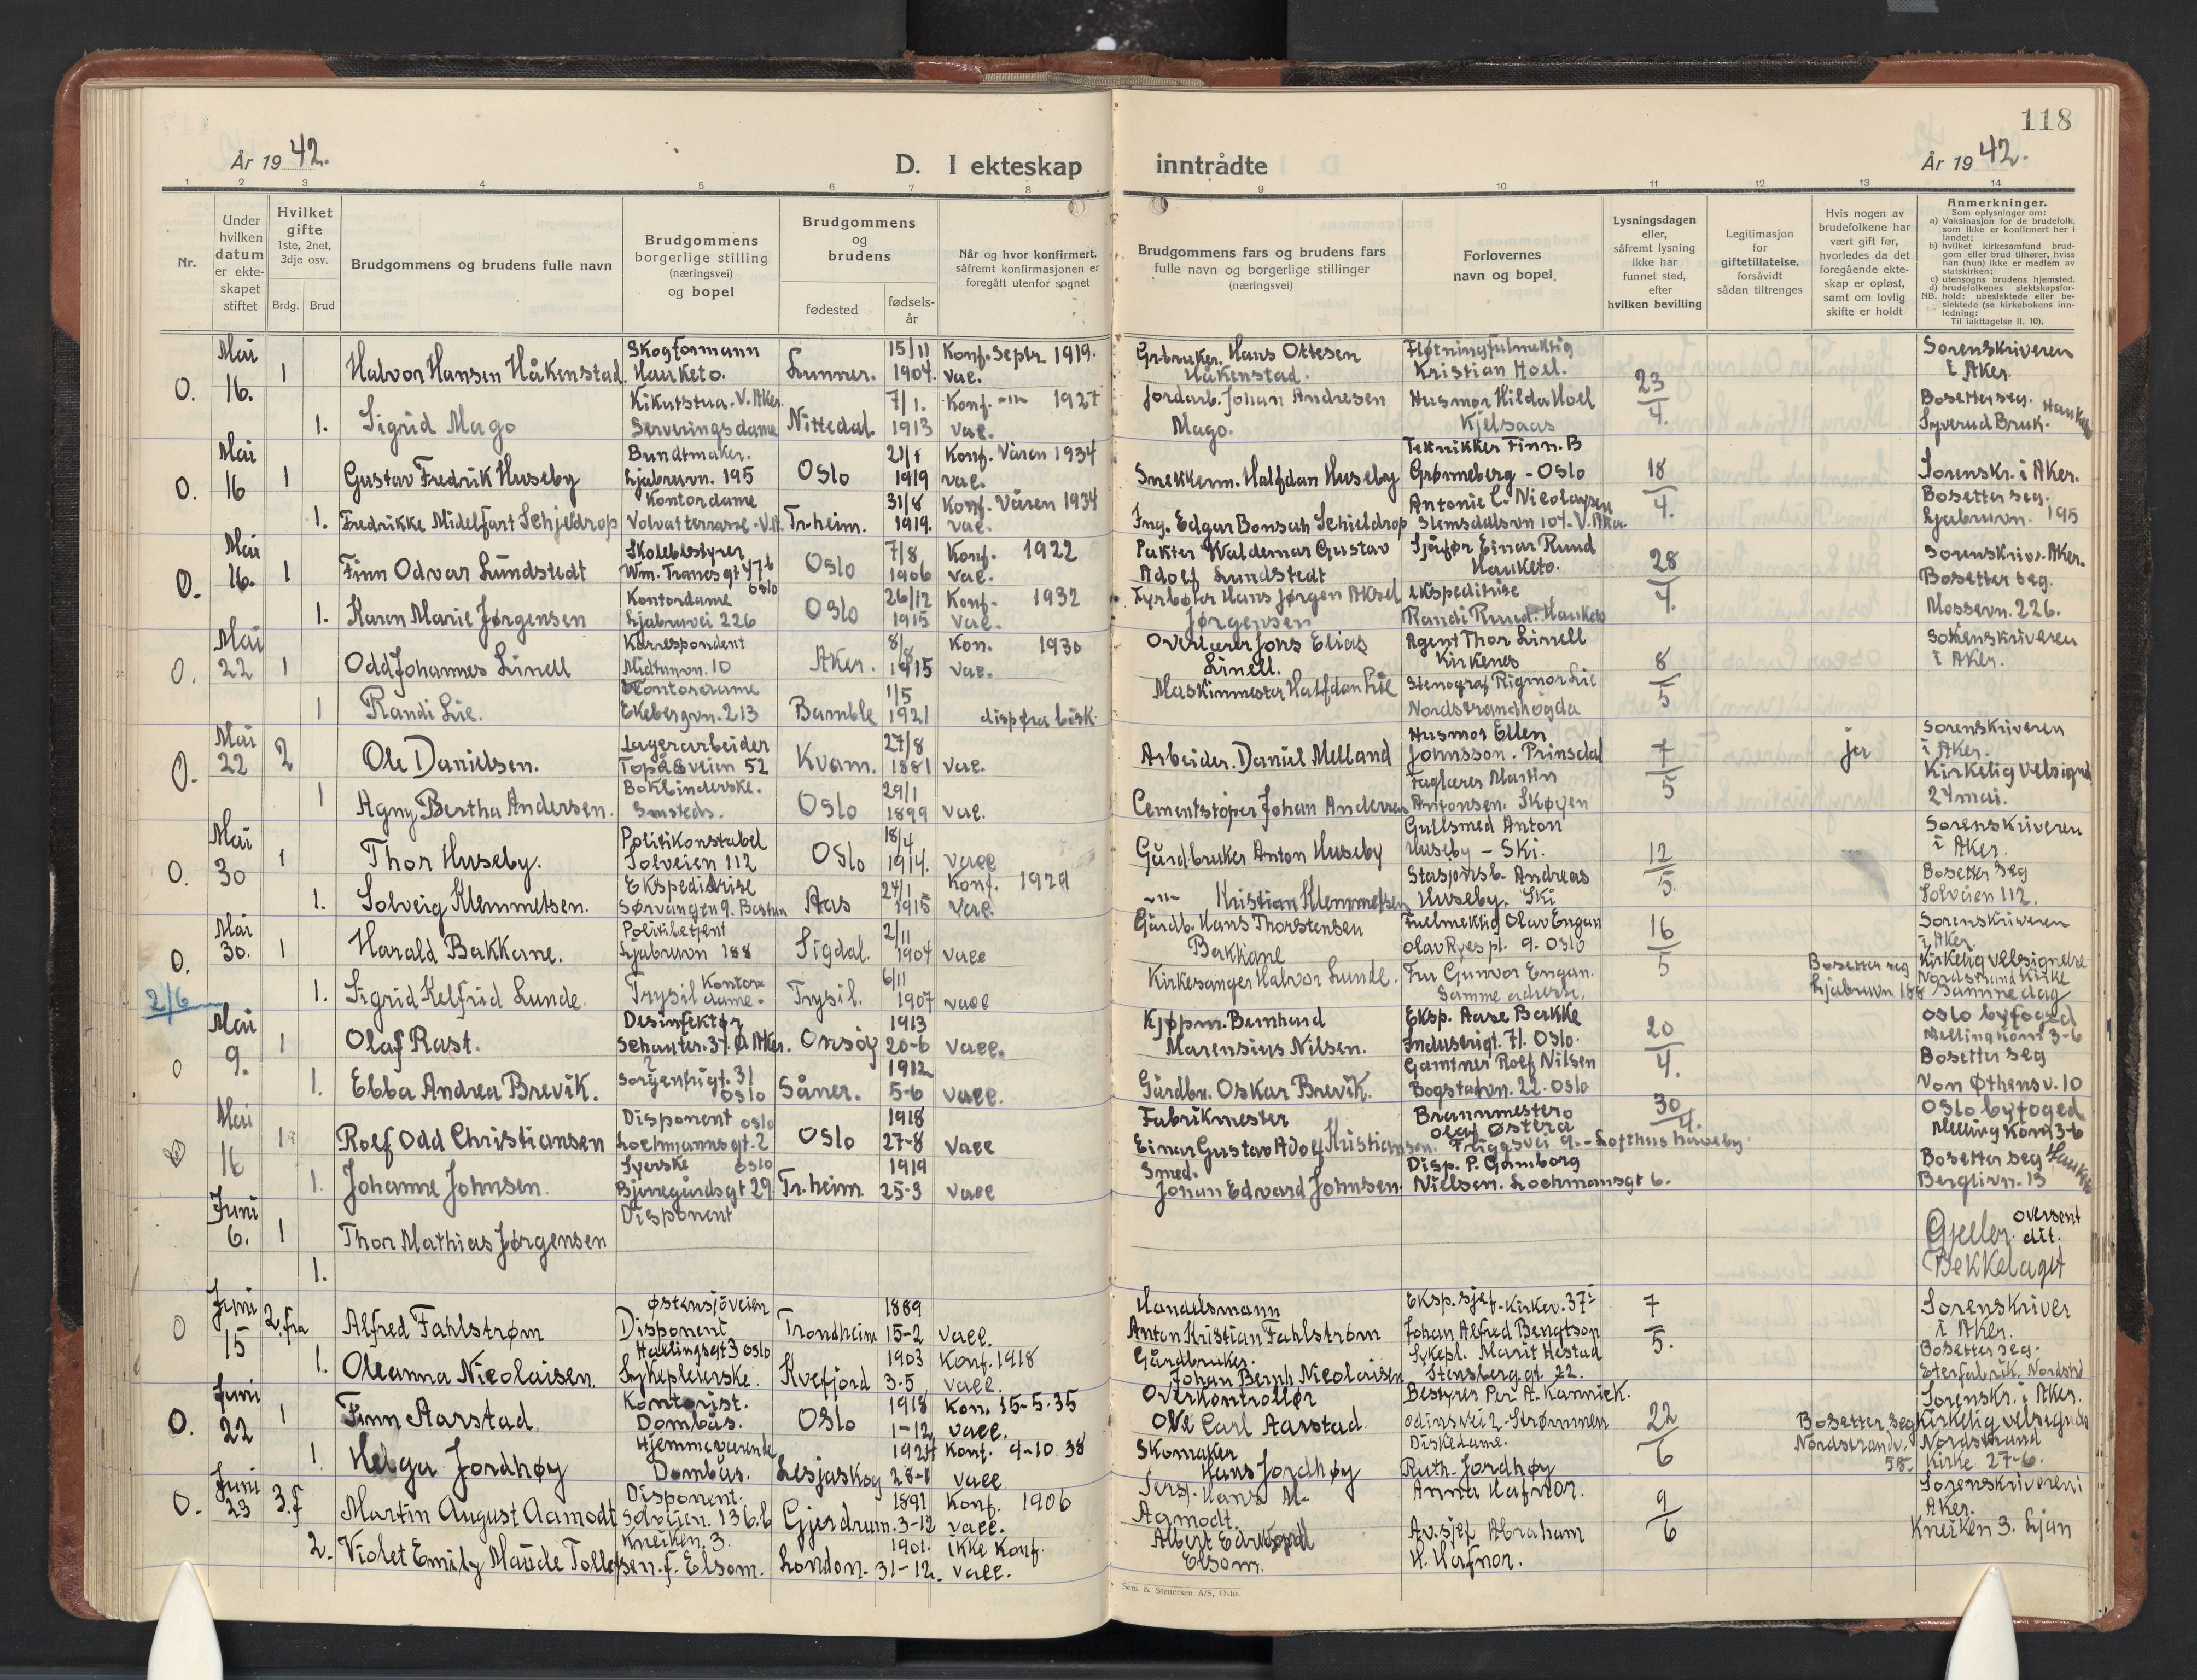 118
År 19 42.
D. I ekteskap inntrådte
År 19 42.
1 2 3 4 5 6 7 8 9 10 11 12 13 14
Nr.
Under hvilken datum er ekteskapet stiftet
Hvilket gifte 1ste, 2net, 3dje osv.
Brdg. Brud
Brudgommens og brudens fulle navn
Brudgommens borgerlige stilling (næringsvei) og bopel
Brudgommens og brudens
fødested
fødselsår
Når og hvor konfirmert, såfremt konfirmasjonen er foregått utenfor sognet
Brudgommens fars og brudens fars fulle navn og borgerlige stillinger (næringsvei)
Forlovernes navn og bopel
Lysningsdagen eller, såfremt lysning ikke har funnet sted, efter hvilken bevilling
Legitimasjon for giftetillatelse, forsåvidt sådan tiltrenges
Hvis nogen av brudefolkene har vært gift før, hvorledes da det foregående ekteskap er opløst, samt om lovlig skifte er holdt
Anmerkninger.
Som oplysninger om:
a) Vaksinasjon for de brudefolk, som ikke er konfirmert her i landet;
b) hvilket kirkesamfund brudgom eller brud tilhører, hviss han (hun) ikke er medlem av statskirken;
c) utensogns brudens hjemsted.
d) brudefolkenes slektskapsforhold: ubeslektede eller beslektede (se kirkebokens innledning:
NB.
Til iakttagelse II. 10).
O. Mai 16. 1 Halvor Hansen Håkenstad. Skogformann Hauketo. Lunner. 15/11 1904. Konf. Septr. 1919. vac. Grbruker. Hans Ottesen Håkenstad. Fløtningfulmektig Kristian Hoel. 23/4. Sorenskriveren i Aker.
1. Sigrid Mago Kikutstua. V. Aker. Serveringsdame Nittedal. 7/1. 1913 Konf. -"- 1927 vac. Jordarb. Johan Andresen Mago. Husmor Hilda Hoel Kjelsaas Bosetter seg. Syverud Bruk.
O. Mai 16 1 Gustav Fredrik Huseby Bundtmaker. Ljabruvn. 195 Oslo 21/1 1919 Konf. Våren 1934 vac. Snekkerm. Halfdan Huseby Teknikker Finn. B Grønneberg - Oslo 18/4. Sorenskr. i Aker.
1. Fredrikke Midelfart Schjeldrop Kontordame Volvatterrasse. V.A. Tr.heim. 31/8 1919. Konf. Våren 1934 vac. Ing. Edgar Bonsach Schieldrop Antonie C. Nicolaysen Slemsdalsvn 107. V. Aker Bosetter seg. Ljabruvn. 195
O. Mai 16. 1 Finn Odvar Lundstedt Skolebestyrer Wm. Tranesgt 47 b Oslo Oslo 7/8 1906 Konf. 1922 vac. Pakter Waldemar Gustav Adolf Lundstedt Sjåfør Einar Ruud Hauketo. 28/4. Sorenskriv. Aker.
1. Karen Marie Jørgensen Kontordame Ljabruvei 226 Oslo 26/12 1915 Konf. 1932 vac. Fyrbøter Hans Jørgen Aksel Jørgensen ekspeditrise Randi Ruud. Hauketo Bosetter seg. Mossevn. 226.
O. Mai 22 1 Odd Johannes Linell Korrespondent Midtunvn. 10 Aker. 8/8 1915 Kon. 1930 vac. Overlærer Jons Elias Linell. Agent Thor Linell Kirkenes 8/5 Sorenskriveren i Aker.
1 Randi Lie. Kontordame Ekebergvn. 213 Bamble 1/5 1921 disp fra bisk. Maskinmester Halfdan Lie Stenograf Rigmor Lie Nordstrandhøgda
O. Mai 22 2 Ole Danielsen. Lagerarbeider Topåsveien 52 Kvam. 27/8 1881 vac. Arbeider. Daniel Melland Husmor Ellen Johnsson. Prinsdal 7/5 ja Sorenskriveren i Aker.
1 Agny Bertha Andersen. Bokbinderske. Smsteds. Oslo 29/1 1899 vac. Cementstøper Johan Andersen Faglærer Martin Antonsen. Skøyen Kirkelig velsignd 24 mai.
O. Mai 30 1 Thor Huseby. Politikonstabel Solveien 112 Oslo 18/4 1914. vacc Gårdbruker Anton Huseby Gullsmed Anton Huseby - Ski. 12/5. Sorenskriveren i Aker.
1. Solveig Klemmetsen. Ekspeditrise Sørvangen 9. Bestun Aas 24/1 1915 Konf. 1929 vac. -"- Kristian Klemmetsen Stasjonsb. Andreas Huseby. Ski Bosetter seg Solveien 112.
O. Mai 30. 1 Harald Bakkane. Politibetjent Ljabruvn 188 Sigdal. 2/11 1904 vacc Gårdb. Hans Thorstensen Bakkane Fulmektig Olav Engan Olav Ryes pl. 9. Oslo 16/5 Sorenskriveren i Aker
2/6 1. Sigrid Kelfrid Lunde. Kontordame. Trysil Trysil. 6/11 1907 vacc Kirkesanger Halvor Lunde. Fru Gunvor Engan. Samme adresse. Bosetter seg Ljabruvn 188 Kirkelig velsignelse Nordstrand Kirke samme dag
O Mai 9. 1 Olaf Rast. Desinfektør Schauter. 37. Ø. Aker. Onsøy 1913 20-6 vacc. Kjøpm. Bernhard Marensius Nilsen. Eksp. Aase Bakke Industrigt. 71. Oslo. 20/4. Oslo byfoged Melling kom 3-6
1. Ebba Andrea Brevik. Sorgenfrigt. 31 Oslo Såner. 1912 5-6 vacc. Gårdbr. Oskar Brevik. Gartner Rolf Nilsen Bogstadvn. 22. Oslo Bosetter seg Von Øthens v. 10
Mai 16 1 Rolf Odd Christiansen Disponent Oslo Lochmannsgt. 2 Oslo 1918 27-8 vacc Fabrikmester Einar Gustav Adolf Kristiansen. Brannmester Olaf Østerø Friggsvei 9. - Lofthus haveby. 30/4. Oslo byfoged Melling kom 3-6
1. Johanne Johnsen. Syerske Oslo Bjerregårdsgt 29 Tr.heim 1919 25-3 vacc Smed. Johan Edvard Johnsen. Disp. P. Gamborg Nielsen. Lochmannsgt 6. Bosetter seg Berglivn. 13
Juni 6. 1 Thor Mathias Jørgensen Disponent Gjelder oversent dit. Bekkelaget
1.
O Juni 15 2. fra Alfred Fahlstrøm Østensjøveien Disponent Trondheim 1889 15-2 vacc. Handelsmann Anton Kristian Fahlstrøm Eksp. sjef. Kirkev. 37 i Johan Alfred Bengtson 7/5. Sorenskriver i Aker.
1. Oleanna Nicolaisen. Hallingsgt 3 Oslo Sykepleierske. Kvefjord 1903 3-5 Konf. 1918 vacc. Gårdbruker. Johan Bernh Nicolaisen Sykepl. Marit Hestad Stensberg gt. 22. Bosetter seg. Eterfabrik. Nordstr
O. Juni 22 1 Finn Aarstad Kontorist. Dombås. Oslo 1918 1-12 Kon. 15-5-35 vacc. Overkontrollør Ole Carl Aarstad Bestyrer Per A. Kanniek. Odinsvei 2. Strømmen 22/6 Sorenskr. i Aker.
1. Helga Jordhøy Hjemmeværende Dombås. Lesjaskog 1924 28-1 Konf. 9-10. 38 vacc Skomaker Hans Jordhøy Diskedame. Ruth. Jordhøy Bosetter seg Nordstrandv. 58. Kirkelig velsignelse Nordstrand Kirke 27-6.
O. Juni 23 3. f Martin August Aamodt Disponent. Solveien. 136. b Gjerdrum. 1891 3-12 Konf. 1906 vacc. Sersj. Hans M. Aamodt. Anna Hafnor. 9/6 Sorenskriveren i Aker.
2. Violet Emily Maude Tollefsen. f. Elsom. Kneiken. 3. London. 1901. 31-12. ikke Konf. vacc. Albert Edward Elsom. Av.sjef Abraham H. Hafnor. Kneiken 3. Ljan
Sem & Stenersen A/S, Oslo.